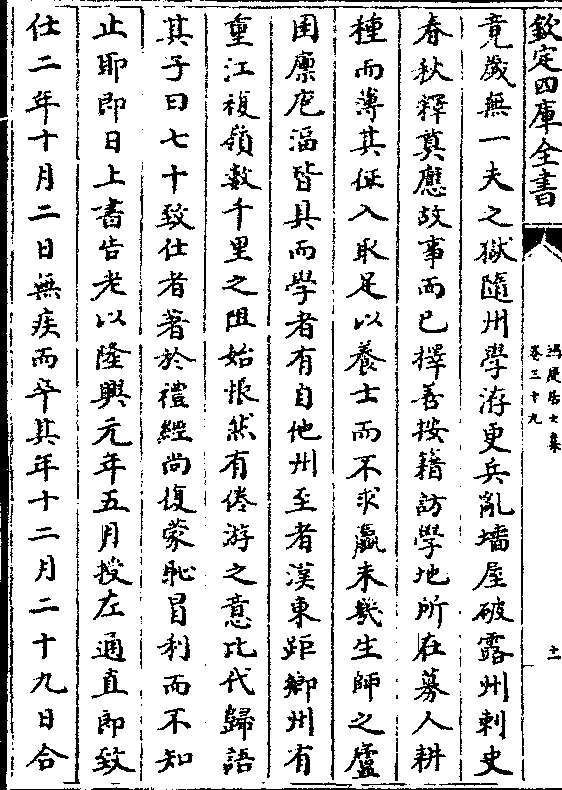 欽定四庫全書
鴻慶居士集
卷三十九
十一
竟歲無一夫之獄隨州學洊更兵亂墻屋破露州刺史
春秋釋奠應故事而已擇善按籍訪學地所在募人耕
種而薄其征入取足以養士而不求贏未幾生師之廬
囷廪庖湢皆具而學者有自他州至者漢東距鄉州有
重江複嶺數千里之阻始悵然有倦游之意比代歸語
其子曰七十致仕者著於禮經尚復蒙恥冒利而不知
止耶即日上書告老以隆興元年五月授左通直郎致
仕二年十月二日無疾而卒其年十二月二十九日合